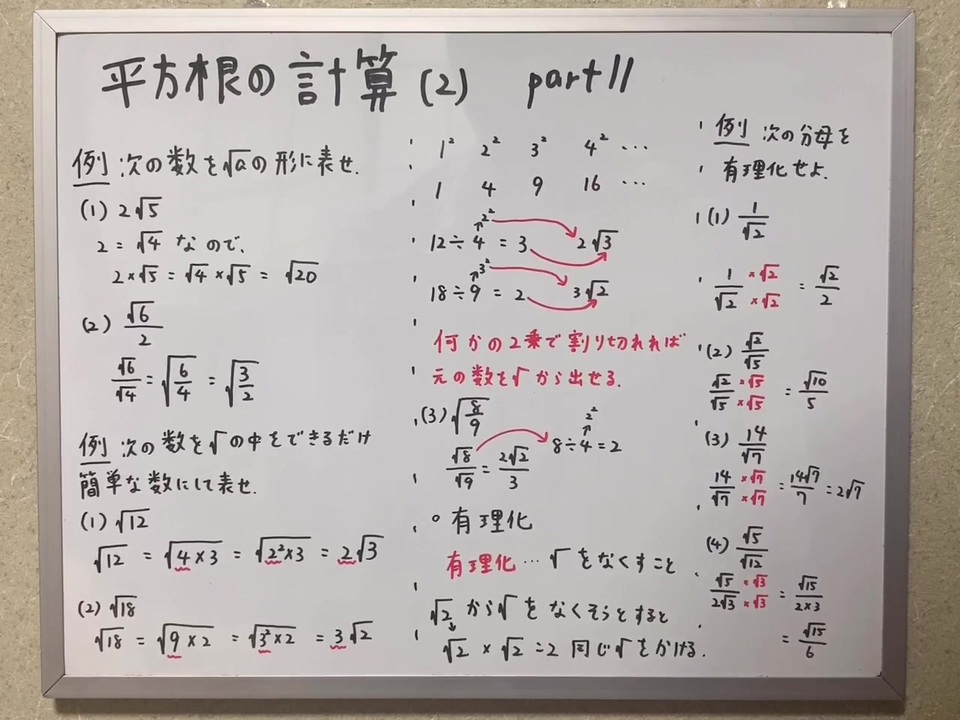 平方根の計算(2) part11
例 次の数を√aの形に表せ.
(1) 2√5
2=√4 なので、
2×√5=√4×√5=√20
(2) √6/2
√6/√4=√(6/4)=√(3/2)
例 次の数を√の中をできるだけ
簡単な数にして表せ.
(1) √12
√12=√(4×3)=√(2²×3)=2√3
(2) √18
√18=√(9×2)=√(3²×2)=3√2
1² 2² 3² 4² …
1 4 9 16 …
2²
12÷4=3 2√3
3²
18÷9=2 3√2
何かの2乗で割り切れれば
元の数を√から出せる.
(3) √(8/9)
2²
√8/√9=2√2/3 8÷4=2
○有理化
有理化…√をなくすこと
√2から√をなくそうとすると
√2×√2=2 同じ√をかける.
例 次の分母を
有理化せよ.
(1) 1/√2
1/√2 ×√2/×√2=√2/2
(2) √2/√5
√2/√5 ×√5/×√5=√10/5
(3) 14/√7
14/√7 ×√7/×√7=14√7/7=2√7
(4) √5/√12
√5/2√3 ×√3/×√3=√15/2×3
=√15/6